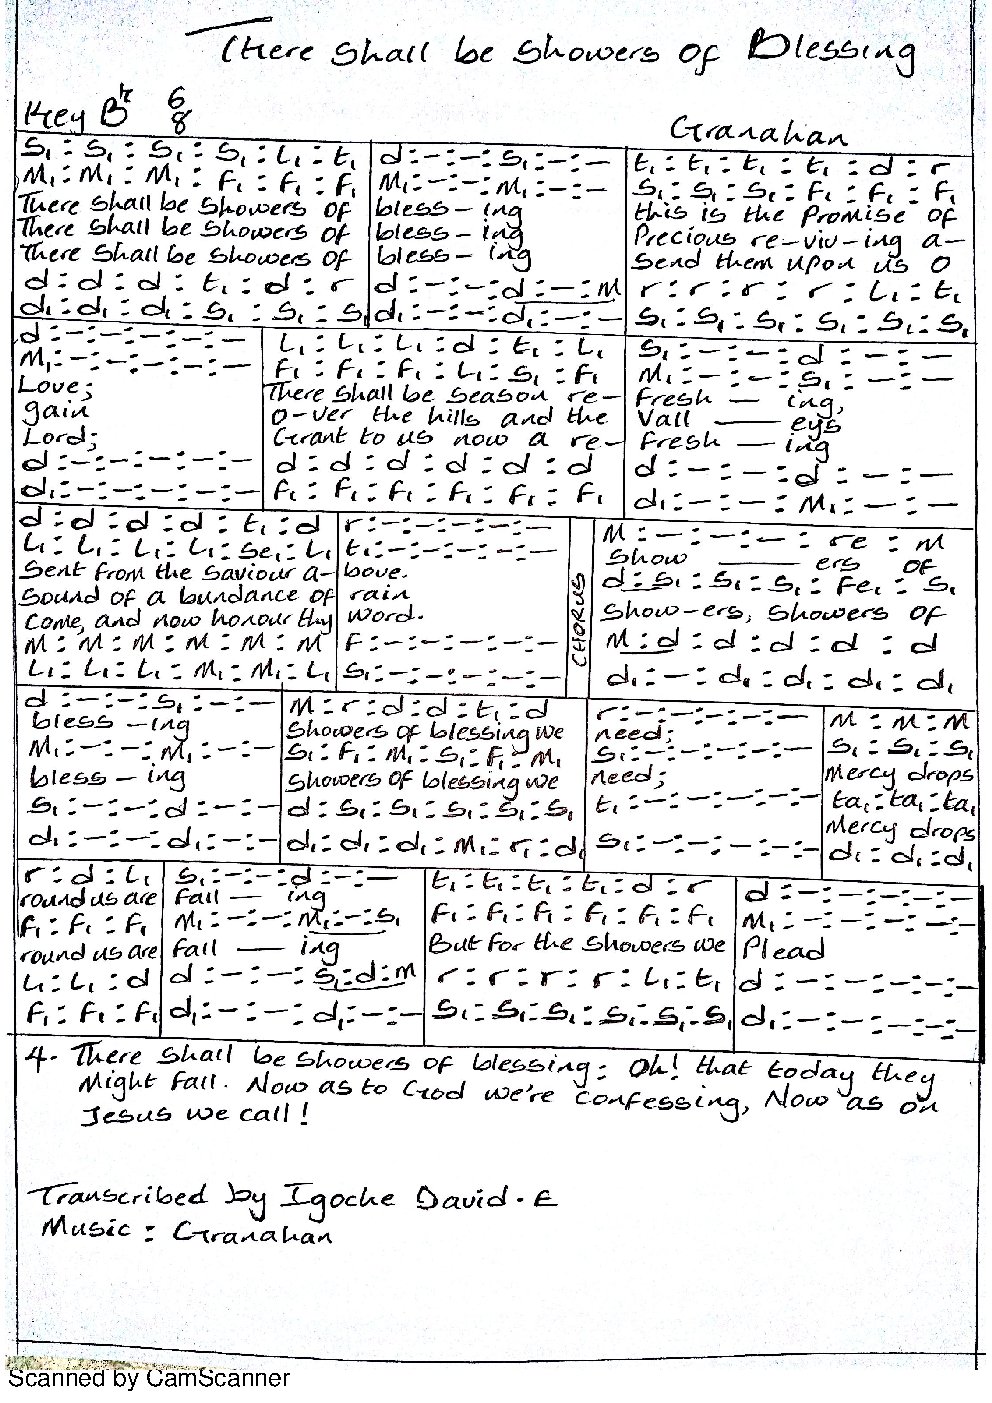 There shall be showers of Blessing
Key B♭ 6/8
Granahan
S₁ : S₁ : S₁ : S₁ : L₁ : t₁
M₁ : M₁ : M₁ : F₁ : F₁ : F₁
There shall be showers of
There shall be showers of
There shall be showers of
d : d : d : t₁ : d : r
d₁ : d₁ : d₁ : S₁ : S₁ : S₁
d : - : - : S₁ : - : -
M₁ : - : - : M₁ : - : -
bless - ing
bless - ing
bless - ing
d : - : - : d : - : M
d₁ : - : - : d₁ : - : -
t₁ : t₁ : t₁ : t₁ : d : r
S₁ : S₁ : S₁ : F₁ : F₁ : F₁
this is the Promise of
Precious re-viv-ing a-
Send them upon us O
r : r : r : r : L₁ : t₁
S₁ : S₁ : S₁ : S₁ : S₁ : S₁
d : - : - : - : - : -
M₁ : - : - : - : - : -
Love;
gain
Lord;
d : - : - : - : - : -
d₁ : - : - : - : - : -
L₁ : L₁ : L₁ : d : t₁ : L₁
F₁ : F₁ : F₁ : L₁ : S₁ : F₁
There shall be season re-
O-ver the hills and the
Grant to us now a re-
d : d : d : d : d : d
F₁ : F₁ : F₁ : F₁ : F₁ : F₁
S₁ : - : - : d : - : -
M₁ : - : - : S₁ : - : -
Fresh - ing,
Vall - eys
Fresh - ing
d : - : - : d : - : -
d₁ : - : - : M₁ : - : -
d : d : d : d : t₁ : d
L₁ : L₁ : L₁ : L₁ : Se₁ : L₁
Sent from the Saviour a-
Sound of a bundance of
Come, and now honour thy
M : M : M : M : M : M
L₁ : L₁ : L₁ : M₁ : M₁ : L₁
r : - : - : - : - : -
t₁ : - : - : - : - : -
bove.
rain
word.
F : - : - : - : - : -
S₁ : - : - : - : - : -
CHORUS
M : - : - : - : re : M
Show - ers of
d : S₁ : S₁ : S₁ : Fe₁ : S₁
Show-ers, showers of
M : d : d : d : d : d
d₁ : - : d₁ : d₁ : d₁ : d₁
d : - : - : S₁ : - : -
bless - ing
M₁ : - : - : M₁ : - : -
bless - ing
S₁ : - : - : d : - : -
d₁ : - : - : d₁ : - : -
M : r : d : d : t₁ : d
Showers of blessing we
S₁ : F₁ : M₁ : S₁ : F₁ : M₁
Showers of blessing we
d : S₁ : S₁ : S₁ : S₁ : S₁
d₁ : d₁ : d₁ : M₁ : r₁ : d₁
r : - : - : - : - : -
need;
S₁ : - : - : - : - : -
need;
t₁ : - : - : - : - : -
S₁ : - : - : - : - : -
M : M : M
S₁ : S₁ : S₁
Mercy drops
ta₁ : ta₁ : ta₁
Mercy drops
d₁ : d₁ : d₁
r : d : L₁
round us are
F₁ : F₁ : F₁
round us are
L₁ : L₁ : d
F₁ : F₁ : F₁
S₁ : - : - : d : - : -
Fall - ing
M₁ : - : - : M₁ : - : S₁
Fall - ing
d : - : - : S₁ : d : m
d₁ : - : - : d₁ : - : -
t₁ : t₁ : t₁ : t₁ : d : r
F₁ : F₁ : F₁ : F₁ : F₁ : F₁
But for the showers we
r : r : r : r : L₁ : t₁
S₁ : S₁ : S₁ : S₁ : S₁ : S₁
d : - : - : - : - : -
M₁ : - : - : - : - : -
Plead
d : - : - : - : - : -
d₁ : - : - : - : - : -
4. There shall be showers of blessing: Oh! that today they
Might Fall. Now as to God we're confessing, Now as on
Jesus we call!
Transcribed by Igoche David. E
Music : Granahan
Scanned by CamScanner